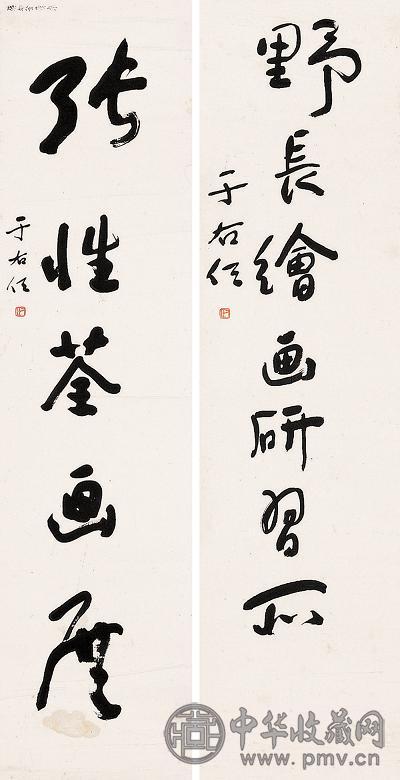 野長繪画研習所
于右任
張性荃画展
于右任
中华收藏网
www.pmv.cn